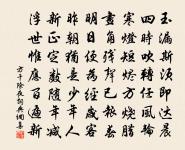 玉漏斯須即達晨
四時吹轉任風輪
寒燈短燼方燒臘
畫角殘聲已報春
明日便為經歲客
昨朝猶是少年人
新正定數隨年減
浮世惟應百遍新
方干除夜詞典網集